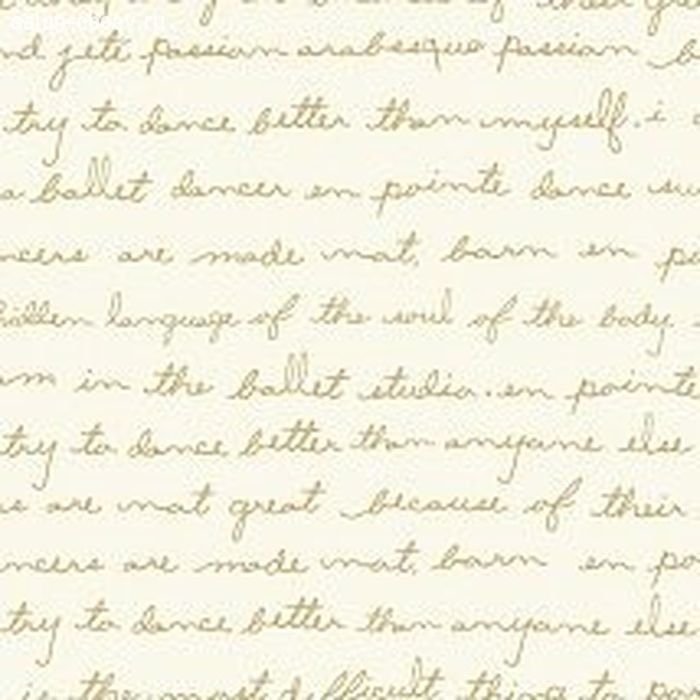 of their
nd jeté passion arabesque passion
try to dance better than myself. i
a ballet dancer en pointe dance
ncers are made not, born en po
hidden language of the soul of the body
in the ballet studio. en pointe
try to dance better than anyone else
are not great because of their
ncers are made not, born en po
try to dance better than anyone else
is the most difficult things to